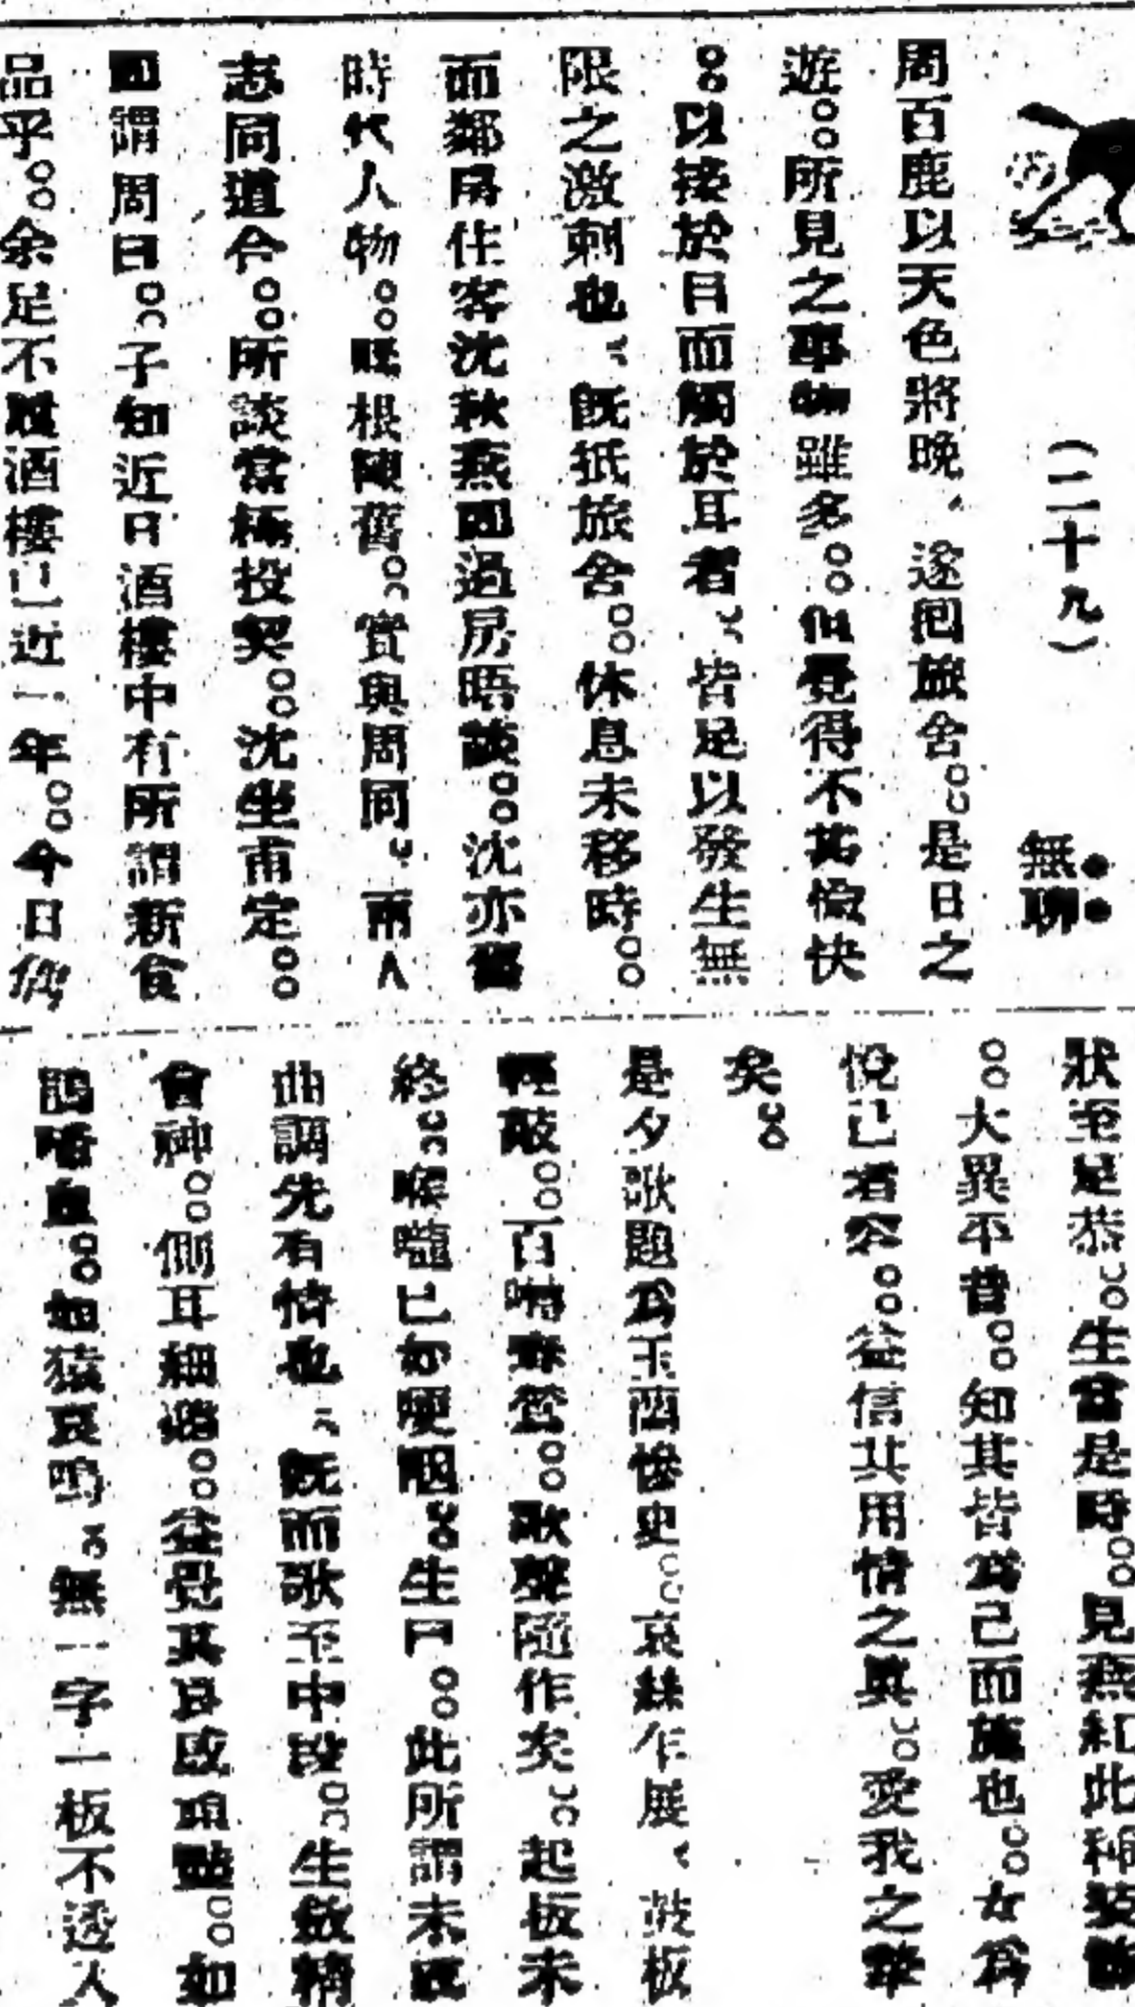 (二十九)
無聊
周百鹿以天色將晚、遂囘旅舍。。是日之
遊。。所見之事物雖多。。但覺得不甚愉快
。。以接於目而觸於耳者、皆足以發生無
限之激刺也、既抵旅舍。。休息未移時。。
而鄰房住客沈秋燕即過房晤談。。沈亦舊
時代人物。。眼根陳舊。。實與周同、兩人
志同道合。。所談當極投契。。沈坐甫定。。
即謂周曰。。子知近日酒樓中有所謂新食
品乎。。余足不履酒樓已近一年。。今日偶
狀至是恭。。生當是時。。見燕紅此種裝飾
。。大異平昔。。知其皆爲己而施也。。女爲
悅己者容。。益信其用情之眞。。愛我之摯
矣。。
是夕歌題爲玉
慘史。。哀絲乍展、鼓板
輕敲。。百囀春鶯。。歌聲隨作矣。。起板未
終。。喉嚨已力哽咽。。生曰。。此所謂未成
曲調先有情也、既而歌至中段。。生斂精
會神。。側耳細聽。。益覺其
感頑豔。。如
鵑啼血。。如猿哀鳴。無一字一板不透人